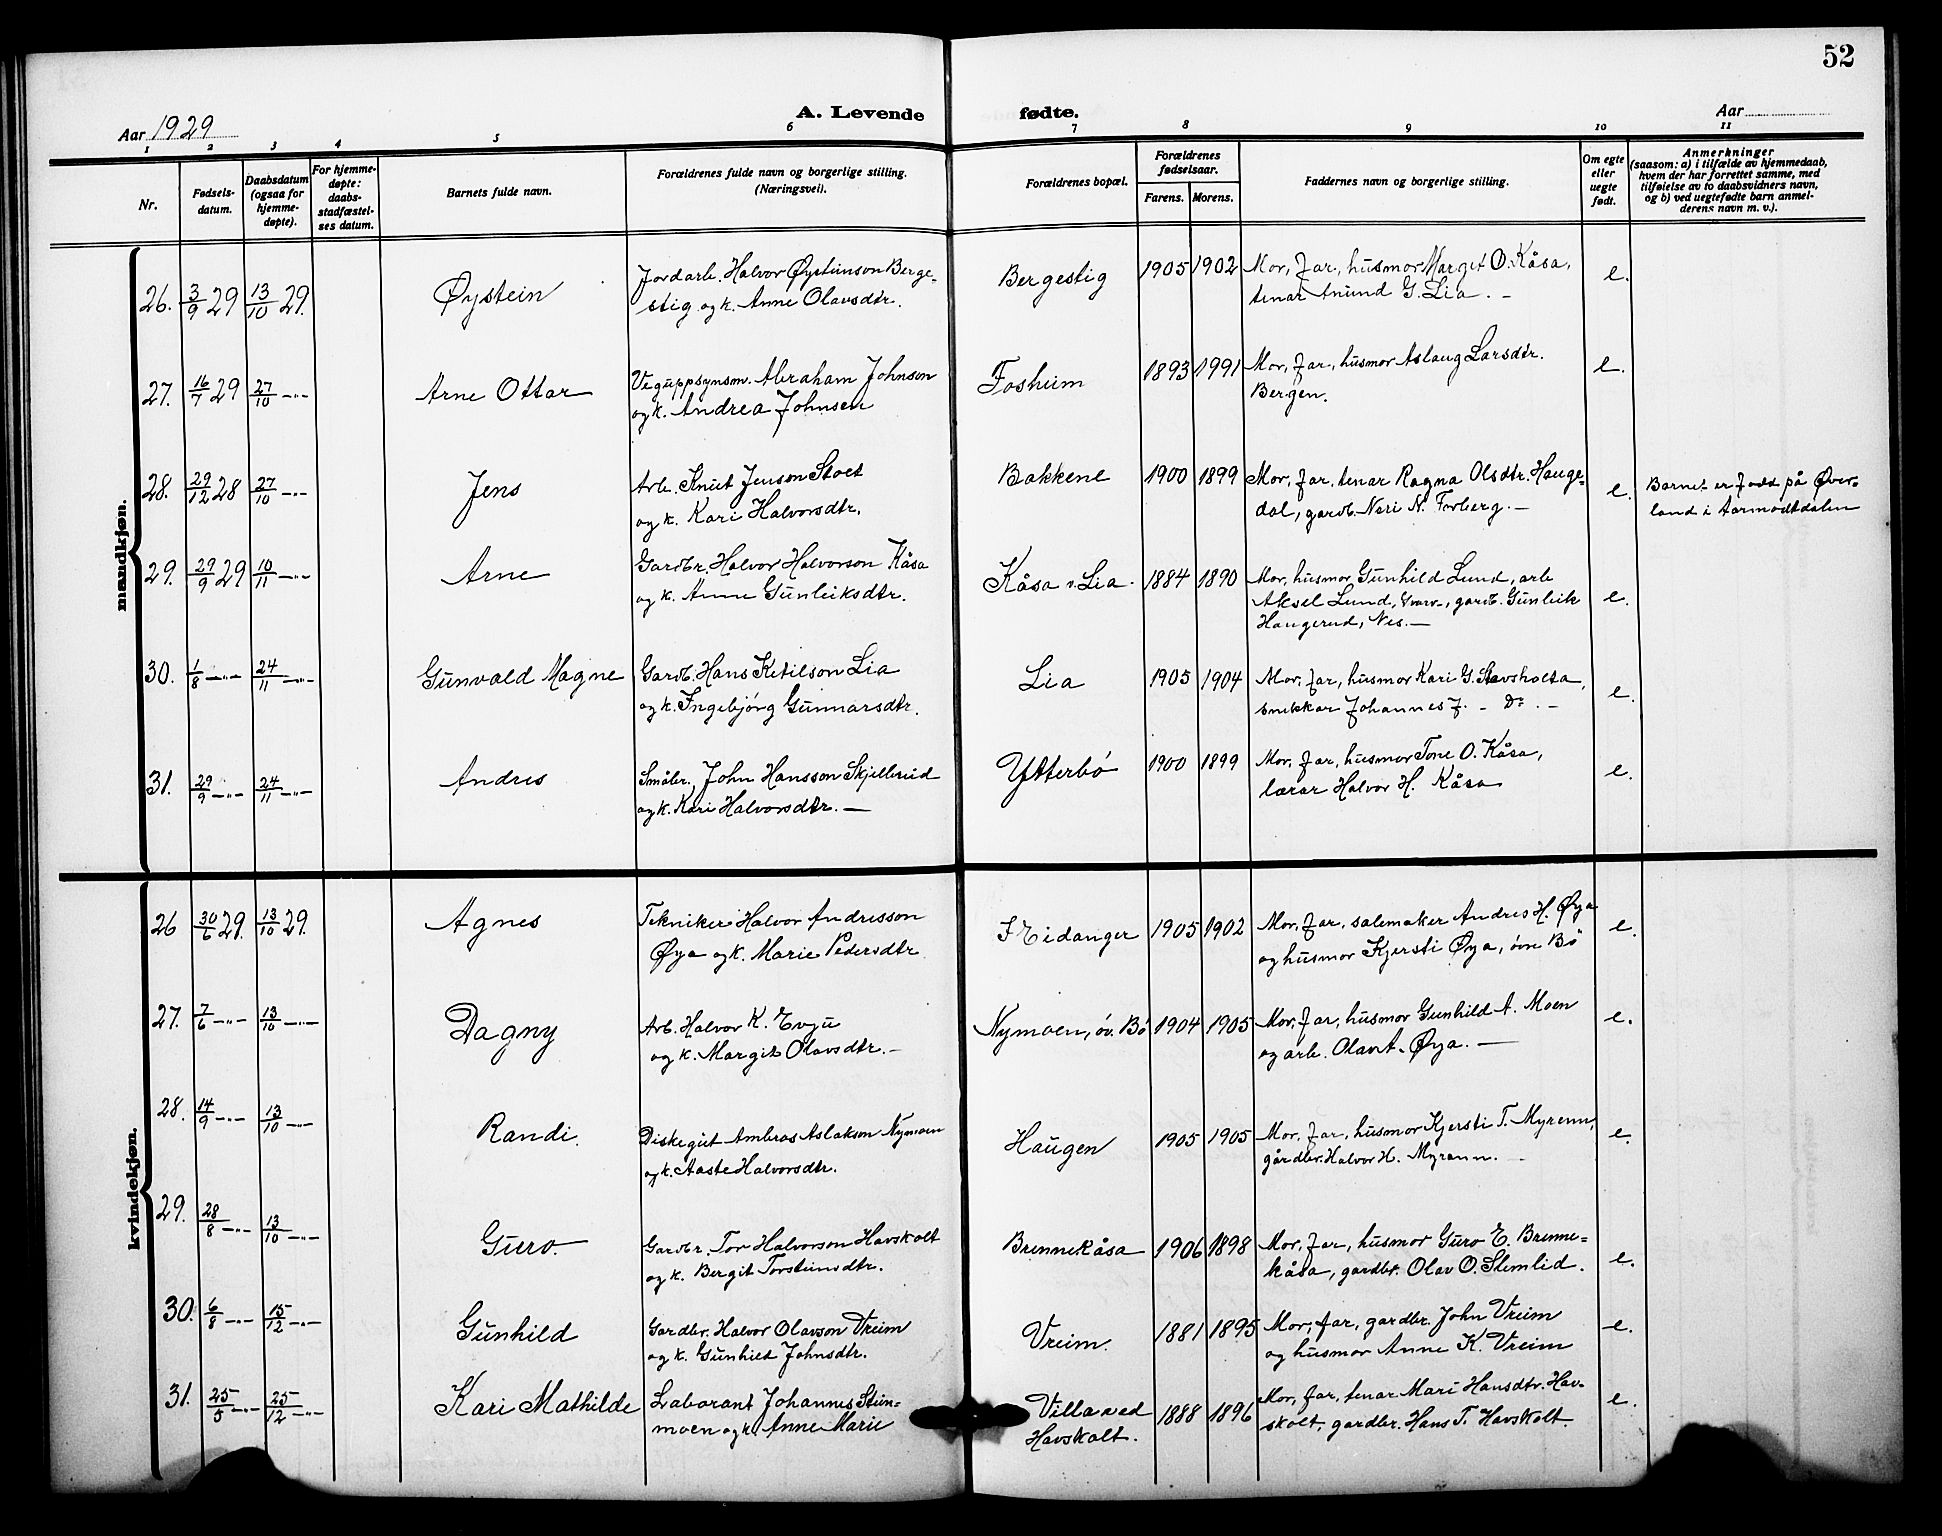 52
A. Levende fødte.
Aar 1929
Aar
1 2 3 4 5 6 7 8 9 10 11
Nr.
Fødsels-
datum.
Daabsdatum
(ogsaa for
hjemme-
døpte).
For hjemme-
døpte:
daabs-
stadfæstel-
ses datum.
Barnets fulde navn.
Forældrenes fulde navn og borgerlige stilling.
(Næringsvei).
Forældrenes bopæl.
Forældrenes
fødselsaar.
Farens. Morens.
Faddernes navn og borgerlige stilling.
Om egte
eller
uegte
født.
Anmerkninger
(saasom: a) i tilfælde av hjemmedaab,
hvem der har forrettet samme, med
tilføielse av to daabsvidners navn,
og b) ved uegtefødte barn anmel-
derens navn m. v.).
mandkjøn.
26. 3/9 29 13/10 29. Øystein
Jordarb. Halvor Øysteinson Berge-
stig og k. Anne Olavsdtr.
Bergestig 1905 1902
Mor, far, husmor Margit O. Kåsa,
tenar Anund G. Lia. –
e.
27. 16/7 29 27/10 –"– Arne Ottar
Veguppsynsm. Abraham Johnson
og k. Andrea Johnsen
Fosheim 1893 1991
Mor, far, husmor Aslaug Larsdtr.
Bergen.
e.
28. 29/12 28 27/10 –"– Jens
Arb. Knut Jenson Stoet
og k. Kari Halvorsdtr.
Bakkene 1900 1899
Mor, far, tenar Ragna Olsdtr. Hauge-
dal, gardb. Neri N. Forberg. –
e.
Barnet er fødd på Øver-
land i Aarmodtdalen
29. 29/9 29 10/11 –"– Arne
Gardbr. Halvor Halvorson Kåsa
og k. Anne Gunleiksdtr.
Kåsa v. Lia. 1884 1890
Mor, husmor Gunhild Lund, arb
Aksel Lund, gardb. Gunleik
Haugerud, Nes. –
e.
30. 1/8 –"– 24/11 –"– Gunvald Magne
Gardb. Hans Ketilson Lia
og k. Ingebjørg Gunnarsdtr.
Lia 1905 1904
Mor, far, husmor Kari G. Stavsholta,
snikkar Johannes J. – Do. –
e.
31. 29/9 –"– 24/11 –"– Andres
Småbr. John Hansson Skjellerud
og k. Kari Halvorsdtr. –
Ytterbø 1900 1899
Mor, far, husmor Tone O. Kåsa,
lærar Halvor H. Kåsa
e.
kvindekjøn.
26 30/6 29. 13/10 29. Agnes
Tekniker Halvor Andresson
Øya og k. Marie Pedersdtr.
Eidanger 1905 1902
Mor, far, salemaker Andres H. Øya
og husmor Kjersti Øya, øvre Bø
e.
27. 7/6 –"– 13/10 –"– Dagny
Arb. Halvor K. Evju
og k. Margit Olavsdtr. –
Nymoen, øv. Bø 1904 1905
Mor, far, husmor Gunhild A. Moen
og arb. Olav A. Øya. –
e.
28. 14/9 –"– 13/10 –"– Randi.
Diskegut Ambros Aslakson Nymoen
og k. Aaste Halvorsdtr.
Haugen 1905 1905
Mor, far, husmor Kjersti T. Myrenn,
gårdbr. Halvor H. Myrann. –
e.
29. 28/8 –"– 13/10 –"– Guro.
Gardbr. Tor Halvorson Havskolt
og k. Bergit Torsteinsdtr.
Brennekåsa 1906 1898
Mor, far, husmor Guro E. Brenne-
kåsa, gardbr. Olav O. Stemlid.
e.
30. 6/8 –"– 15/12 –"– Gunhild
Gardbr. Halvor Olavson Vreim
og k. Gunhild Johnsdtr.
Vreim. 1881 1895
Mor, far, gardbr. John Vreim
og husmor Anne K. Vreim
e.
31. 25/5 –"– 25/12 –"– Kari Mathilde
Laborant Johannes Stein-
moen og k. Anne Marie
Villa ved
Havskolt. 1888 1896
Mor, far, tenar Mari Hansdtr. Hav-
skolt, gardbr. Hans T. Havskolt
e.